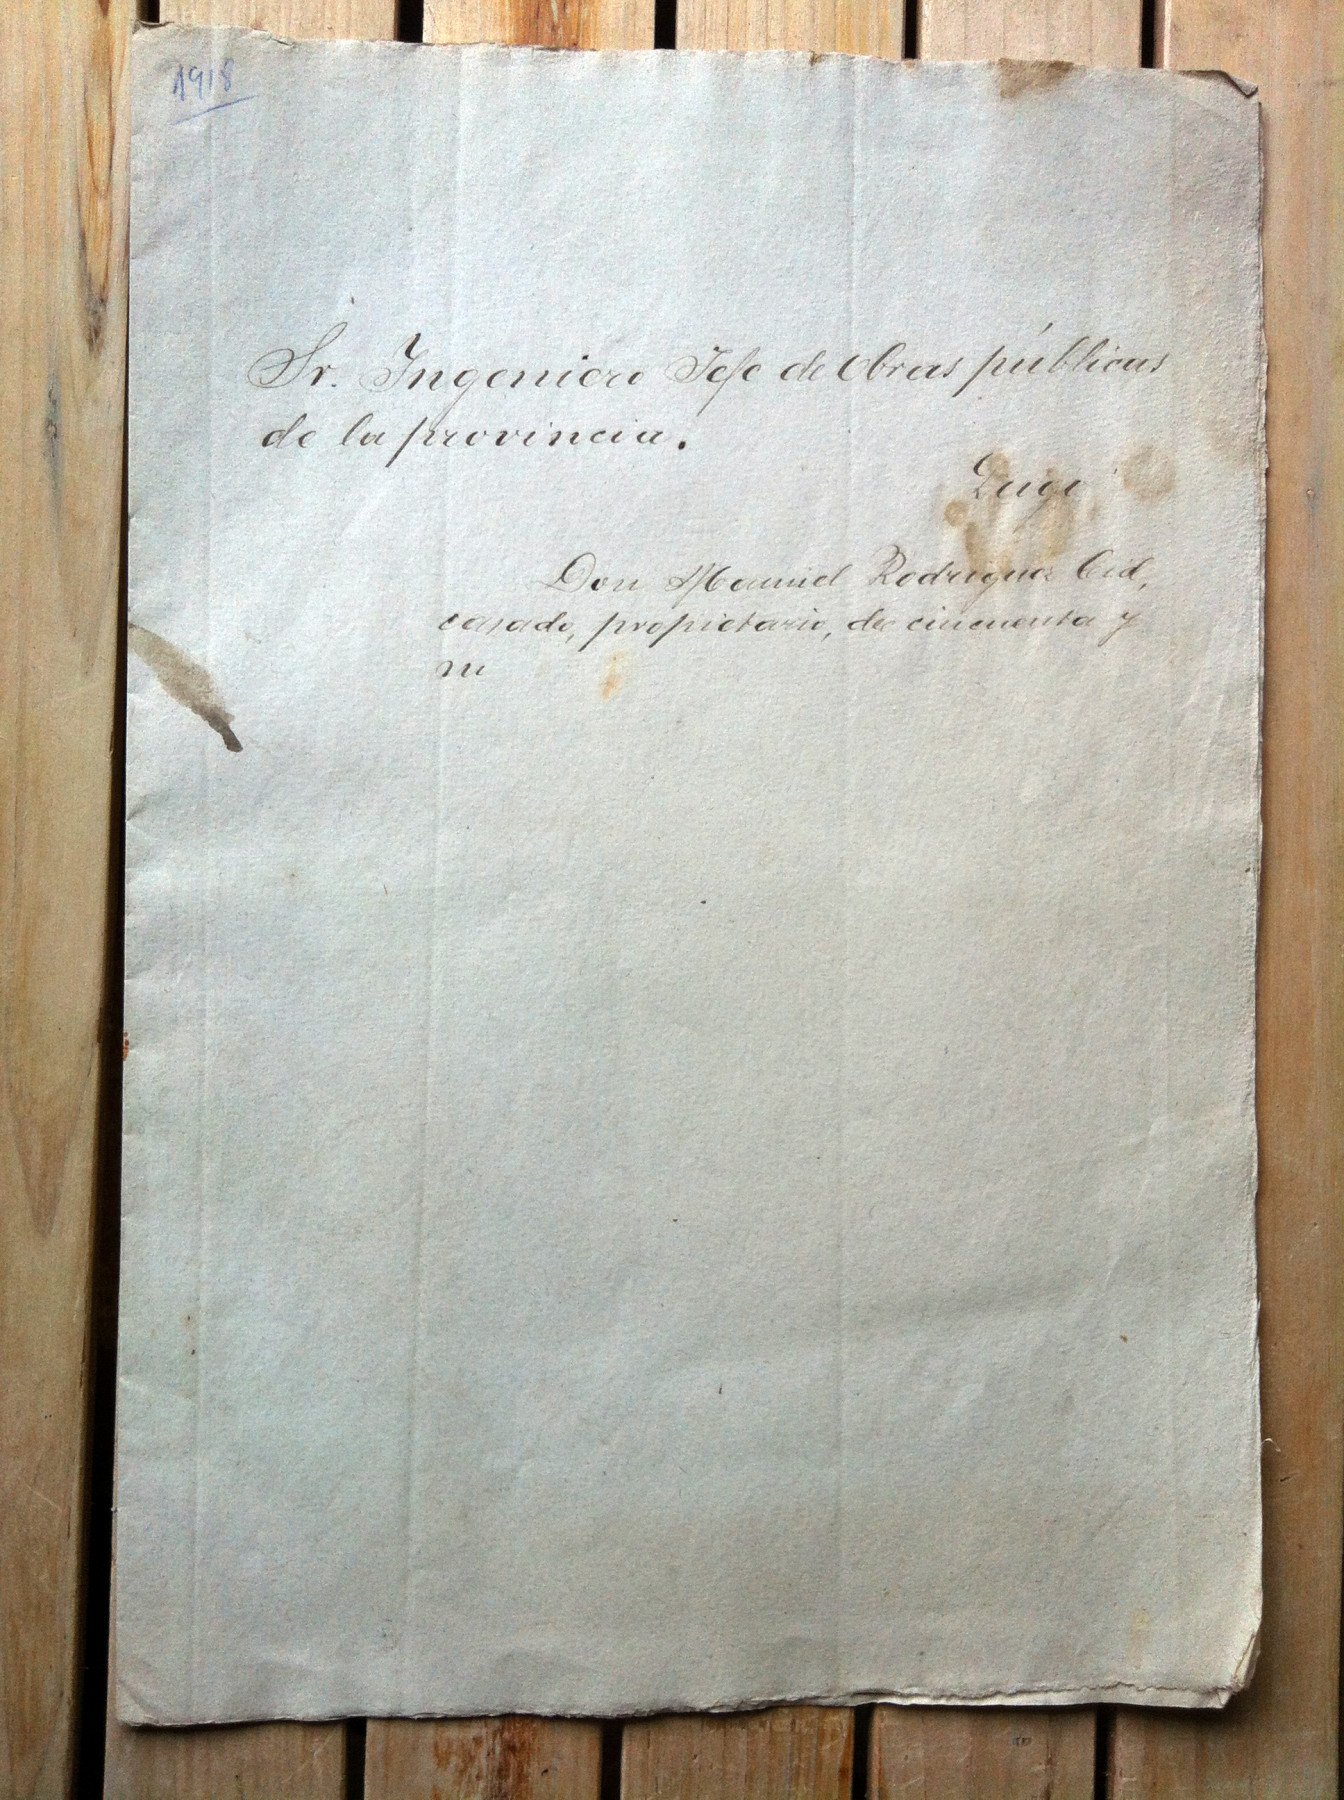 1918
Sr. Ingeniero Jefe de Obras públicas
de la provincia.
Lugo
Don Manuel Rodriguez Cid,
casado, propietario, de cincuenta y
nu